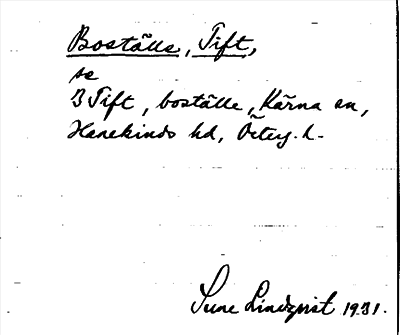 Boställe, Tift,
se
3 Tift, boställe, Kärna sn,
Hanekinds hd, Österg. l.
Sune Lindqvist 1931.